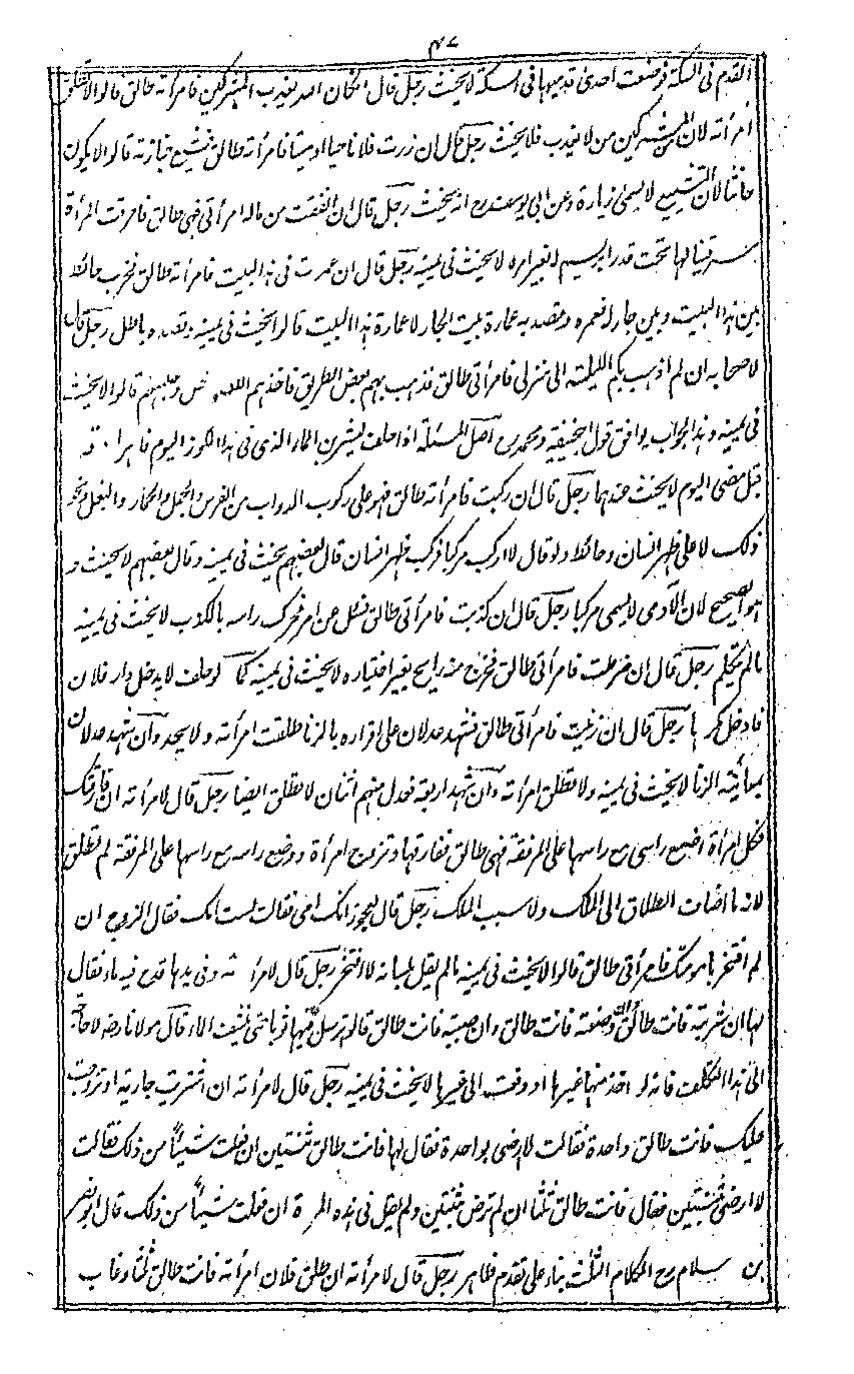 ٤٧
القدم فى السكة فوضعت احدى قدميها فى السكة لا يحنث رجل قال ان كان الله يعذب المشركين فامرأته طالق قالوا لا تطلق
امرأته لان من المشركين من لا يعذب فلا يحنث رجل قال ان زرت فلانا حيا او ميتا فامرأته طالق فشيع جنازته قالوا لا يكون
حانثا لان التشييع لا يسمى زيارة وعن ابى يوسف رح انه يحنث رجل قال ان انفقت من ماله امرأتى فهى طالق فامرت المرأة
لها تحت قدر ابريسم بغير امره لا يحنث فى يمينه رجل قال ان عمرت فى هذا البيت فامرأته طالق فخرب حائط
بين هذا البيت وبين جار له فعمره وقصد به عمارة بيت الجار لا عمارة هذا البيت قالوا يحنث فى يمينه وقصده باطل رجل قال
لاصحابه ان لم اذهب بكم الليلة الى منزلى فامرأتى طالق فذهب بهم بعض الطريق فاخذهم اللصوص وحبسهم قالوا لا يحنث
فى يمينه وهذا الجواب يوافق قول ابيحنيفة ومحمد رح اصل المسئلة اذا حلف ليشربن الماء الذى فى هذا الكوز اليوم فاهراقه
قبل مضى اليوم لا يحنث عندهما رجل قال ان ركبت فامرأته طالق فهو على ركوب الدواب من الفرس والجمل والحمار والبغل ونحو
ذلك لا على ظهر انسان وحائط ولو قال لا اركب مركبا فركب ظهر انسان قال بعضهم يحنث فى يمينه وقال بعضهم لا يحنث و
هو الصحيح لان الآدمى لا يسمى مركبا رجل قال ان كذبت فامرأتى طالق فسئل عن امر فحرك راسه بالكذب لا يحنث فى يمينه
مالم يتكلم رجل قال ان ضرطت فامرأتى طالق فخرج منه ريح بغير اختياره لا يحنث فى يمينه كما لو حلف لا يدخل دار فلان
فادخل كرها رجل قال ان زنيت فامرأتى طالق فشهد عدلان على اقراره بالزنا طلقت امرأته ولا يحد وان شهد عدلان
بمعاينة الزنا لا يحنث فى يمينه ولا تطلق امرأته وان شهد اربعة فعدل منهم اثنان لا تطلق ايضا رجل قال لامرأته ان فارقتك
فكل امرأة اضع راسى مع راسها على المرفقة فهى طالق ففارقها وتزوج امرأة ووضع راسه مع راسها على المرفقة لم تطلق
لانه ما اضاف الطلاق الى الملك ولا سبب الملك رجل قال لعجوز انك امى فقالت لست امك فقال الزوج ان
لم افتخر بامومتك فامرأتى طالق قالوا لا يحنث فى يمينه مالم يقل بلسانه لا افتخر رجل قال لامرأته وفى يدها قدح فيه ماء فقال
لها ان شربته فانت طالق وان وضعته فانت طالق وان صببته فانت طالق قالوا ترسل فيها ثوبا حتى ينشف الماء قال مولانا رضه لا حاجة
الى هذا التكلف فانه لو اخذ منها غيرها او دفعت الى غيرها لا يحنث فى يمينه رجل قال لامرأته ان اشتريت جارية او تزوجت
عليك فانت طالق واحدة فقالت لا ارضى بواحدة فقال لها فانت طالق ثنتين ان فعلت شيئا من ذلك فقالت
لا ارضى ثنتين فقال فانت طالق ثلثا ان لم ترض ثنتين ولم يقل فى هذه المرة ان فعلت شيئا من ذلك قال ابو نصر
بن سلام رح الكلام الثالث بناء على تقدم ظاهر رجل قال لامرأته ان طلق فلان امرأته فانت طالق ثلثا وغاب